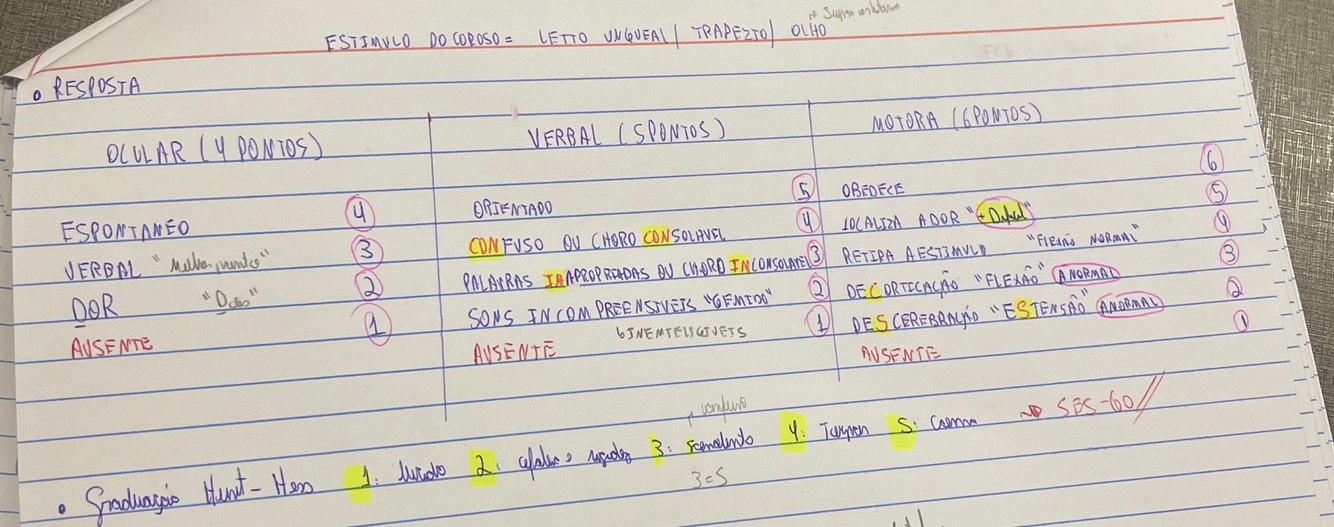 → Supra orbitário
ESTIMULO DOLOROSO = LEITO UNGUEAL / TRAPEZIO / OLHO
• RESPOSTA
OCULAR (4 PONTOS)
ESPONTANEO 4
VERBAL 3
DOR 2
AUSENTE 1
VERBAL (5 PONTOS)
ORIENTADO 5
CONFUSO OU CHORO CONSOLAVEL 4
PALAVRAS INAPROPRIADAS OU CHORO INCONSOLAVEL 3
SONS INCOMPREENSIVEIS "GEMIDO" 2
AUSENTE 1
MOTORA (6 PONTOS)
6
OBEDECE 5
LOCALIZA A DOR 4
RETIRA A ESTIMULO "FLEXÃO NORMAL" 3
DECORTICAÇÃO "FLEXÃO" ANORMAL 2
DESCEREBRAÇÃO "ESTENSÃO" ANORMAL 1
AUSENTE
confuso
• Graduação Hunt-Hess 1: lucido 2: cefaleia e rigidez 3: Sonolento 4: Torpor 5: Coma → SES-GO //
3=S